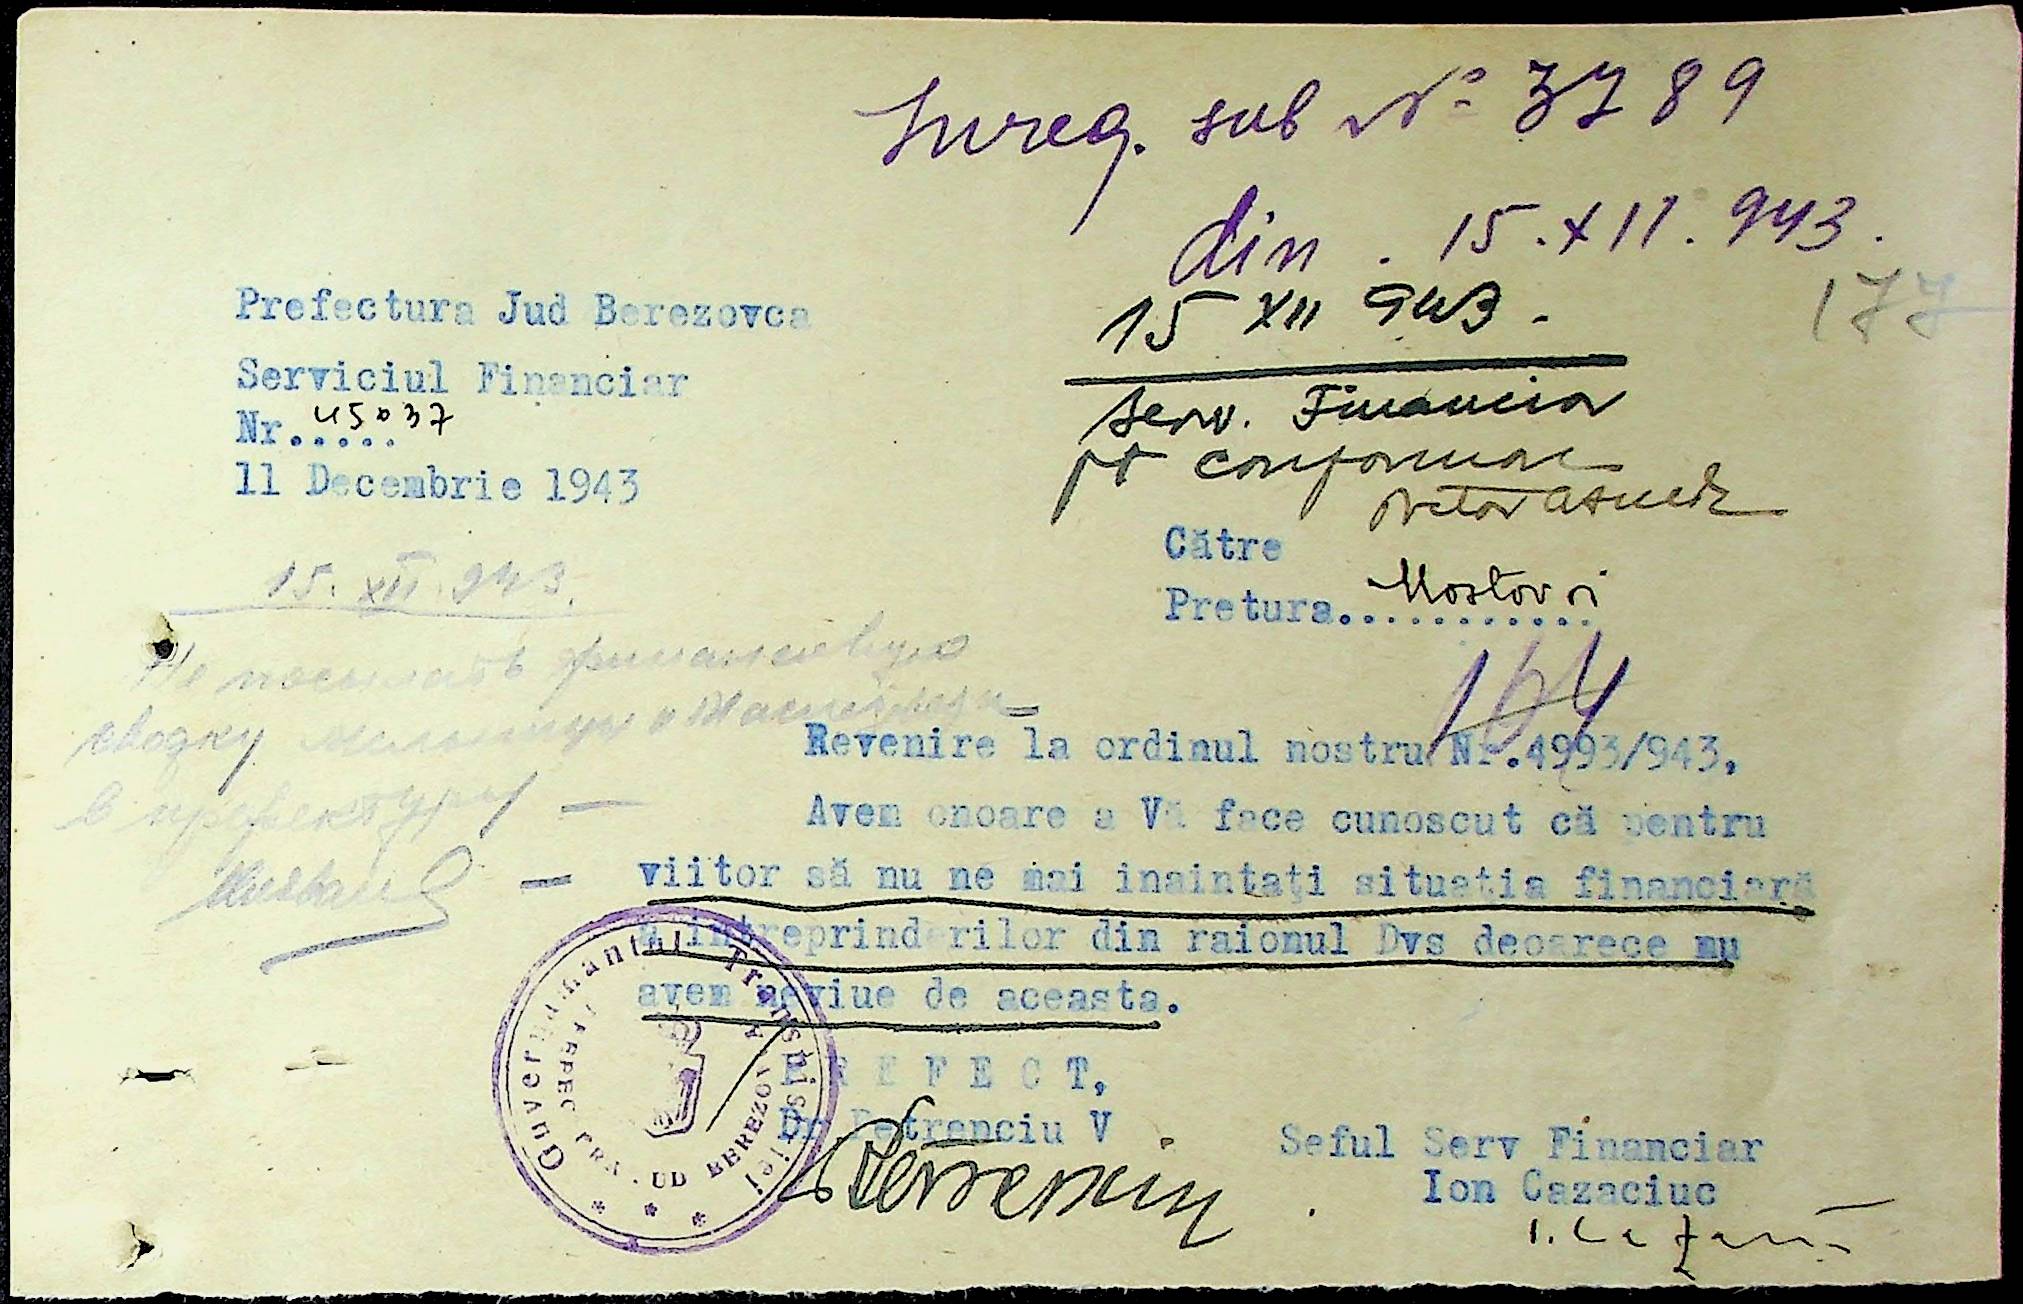 Inreg. sub № 3789
din . 15.XII.943.
177
15 XII 943.
Serv. Financiar
pt conformare
Prefectura Jud Berezovca
Serviciul Financiar
Nr.....
11 Decembrie 1943
Către
Pretura............ Mostovoi
15.XII.943.
Не посылать финансовую
сводку мельницы и
в префектуру
164
Revenire la ordinul nostru Nr.4993/943,
Avem onoare a Vă face cunoscut că pentru
viitor să nu ne mai inaintați situația financiară
a intreprinderilor din raionul Dvs deoarece nu
avem neviue de aceasta.
Guvernamantul Transnistriei
PREFECTURA JUD BEREZOVCA
P R E F E C T,
Dr Petrenciu V
Seful Serv Financiar
Ion Cazaciuc